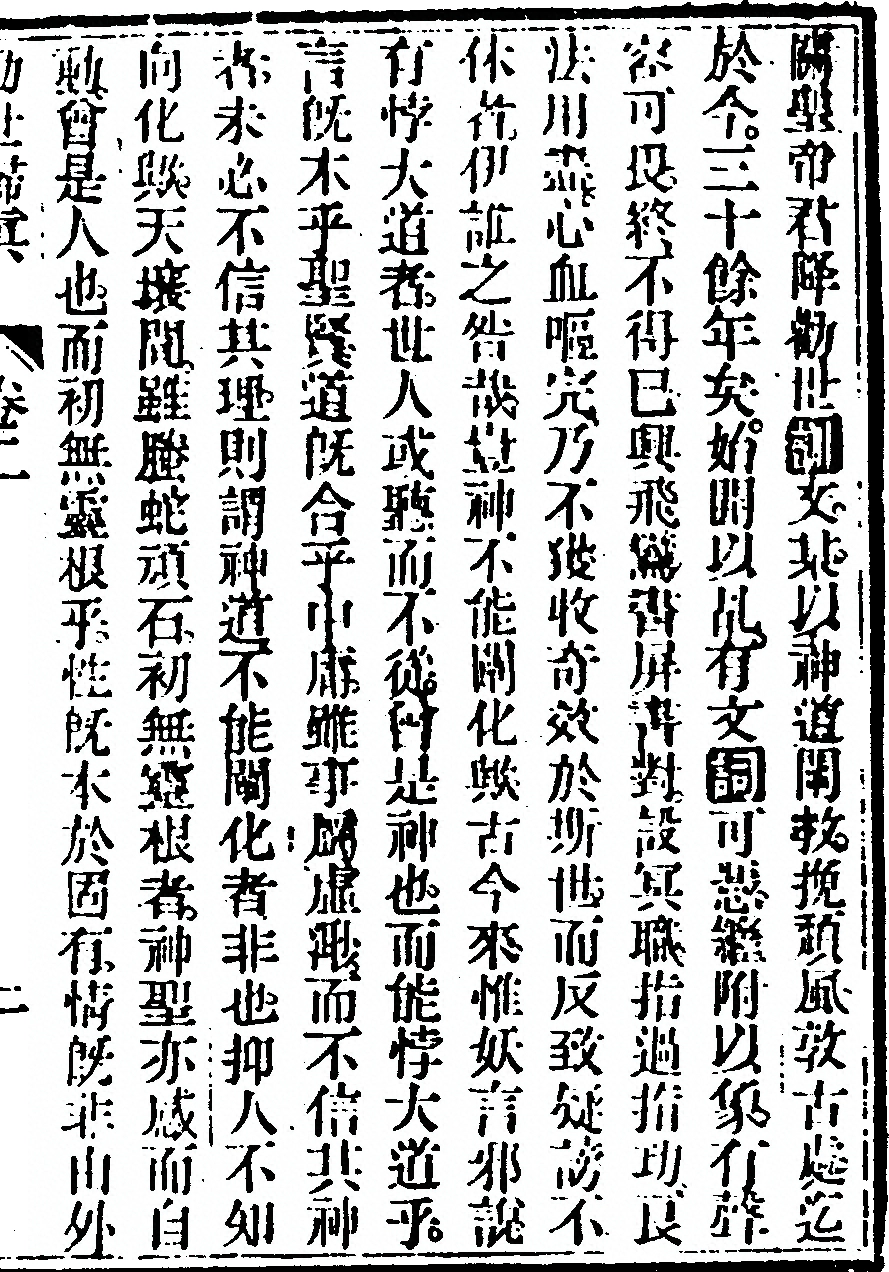 關聖帝君降勸世詞文非以神道開教挽頹風敦古處迄
於今三十餘年矣始開以乩有文詞可悉繼附以象有聲
容可畏終不得已興飛鸞書屏書對設冥職指過指功良
法用盡心血嘔完乃不獲收奇效於斯世而反致疑謗不
休者伊誰之咎哉豈神不能闡化歟古今來惟妖言邪說
有悖大道者世人或聽而不從曾是神也而能悖大道乎
言既本乎聖賢道既合乎中庸雖事屬虛渺而不信其神
者未必不信其理則謂神道不能闡化者非也抑人不知
向化歟天壤間雖螣蛇頑石初無靈根者神聖亦感而自
動曾是人也而初無靈根乎性既本於固有情既非由外
卷二
二